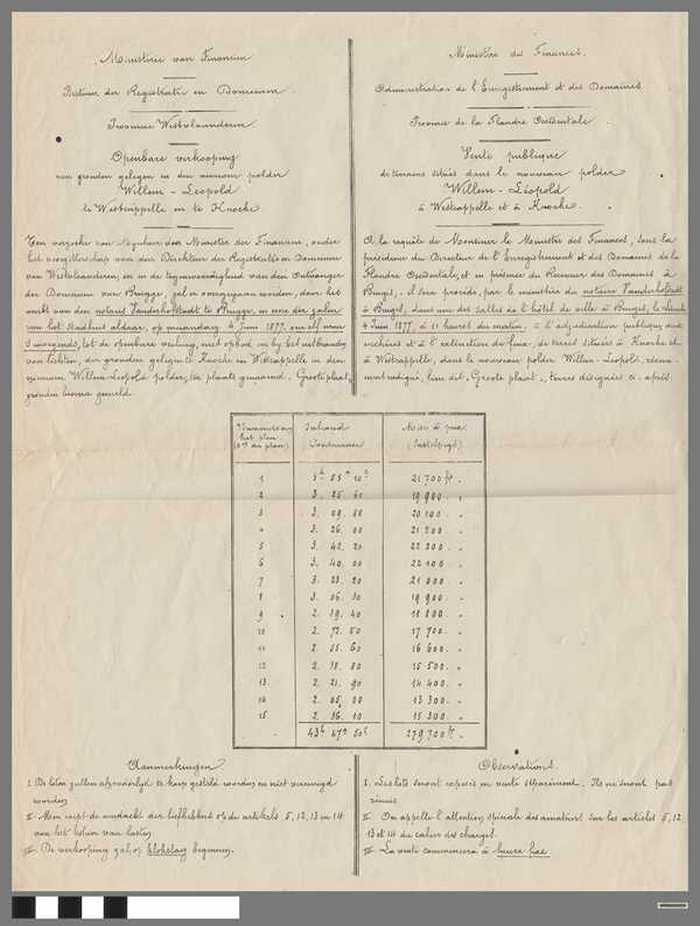 Ministerie van Financien
Bestuur der Registratie en Domeinen.
Provincie Westvlaanderen.
Openbare verkooping
van gronden gelegen in den nieuwen polder
Willem - Leopold
te Westcappelle en te Knocke
Ten verzoeke van Mynheer den Minister der Financien, onder
het voorzitterschap van den Direkteur der Registratie en Domeinen
van Westvlaanderen, en in de tegenwoordigheid van den Ontvanger
der Domeinen van Brugge, zal er overgegaan worden, door het
ambt van den notaris Vanderhofstadt te Brugge, in eene der zalen
van het Stadhuis aldaar, op maandag 4 Juni 1877, om elf uren
's morgends, tot de openbare veiling, met opbod en by het uitbranden
van lichten, der gronden gelegen te Knocke en Westcappelle in den
nieuwen Willem-Leopold polder, ter plaats genaamd Groote plaat,
gronden hierna gemeld
Ministère des Finances.
Administration de l'Enregistrement et des Domaines
Province de la Flandre Occidentale.
Vente publique
de terrains situés dans le nouveau polder
Willem - Léopold
à Westcappelle et à Knocke.
A la requête de Monsieur le Ministre des Finances, sous la
présidence du Directeur de l'Enregistrement et des Domaines de la
Flandre Occidentale, et en présence du Receveur des Domaines à
Bruges, il sera procédé, par le ministère du notaire Vanderhofstadt
à Bruges, dans une des salles de l'hôtel de ville à Bruges, le Lundi
4 Juin 1877, à 11 heures du matin, à l'adjudication publique aux
enchères et à l'extinction de feux, de terres situées à Knocke et
à Westcappelle, dans le nouveau polder Willem-Léopold,
lieu dit "Groote plaat", terres désignées ci-après
het plan
(Nos du plan)
Inhoud
Contenance
Mise à prix
1 3h 35a 10c 21700 fr.
2 3. 25. 60 19900. "
3 3. 09. 80 20100. "
4 3. 26. 00 21200 "
5 3. 42. 20 22200. "
6 3. 40. 00 22100 "
7 3. 23. 20 21000 "
8 3. 06. 30 19900. "
9 2. 89. 40 18800. "
10 2. 72. 50 17700. "
11 2. 55. 60 16600. "
12 2. 38. 80 15500. "
13 2. 21. 90 14400. "
14 2. 05. 00 13300. "
15 2. 36. 10 15300. "
43h 47a 50c 279,700 fr.
Aanmerkingen
I. De loten zullen afzonderlyk te koop gesteld worden en niet vereenigd
worden
II. Men roept de aandacht der liefhebbers op de artikels 5, 12, 13 en 14
van het kohier van lasten
III. De verkooping zal op klokslag beginnen.
Observations.
I. Les lots seront exposés en vente séparément. Ils ne seront pas
réunis
II. On appelle l'attention spéciale des amateurs sur les articles 5, 12,
13 et 14 du cahier des charges.
III. La vente commencera à heure fixe